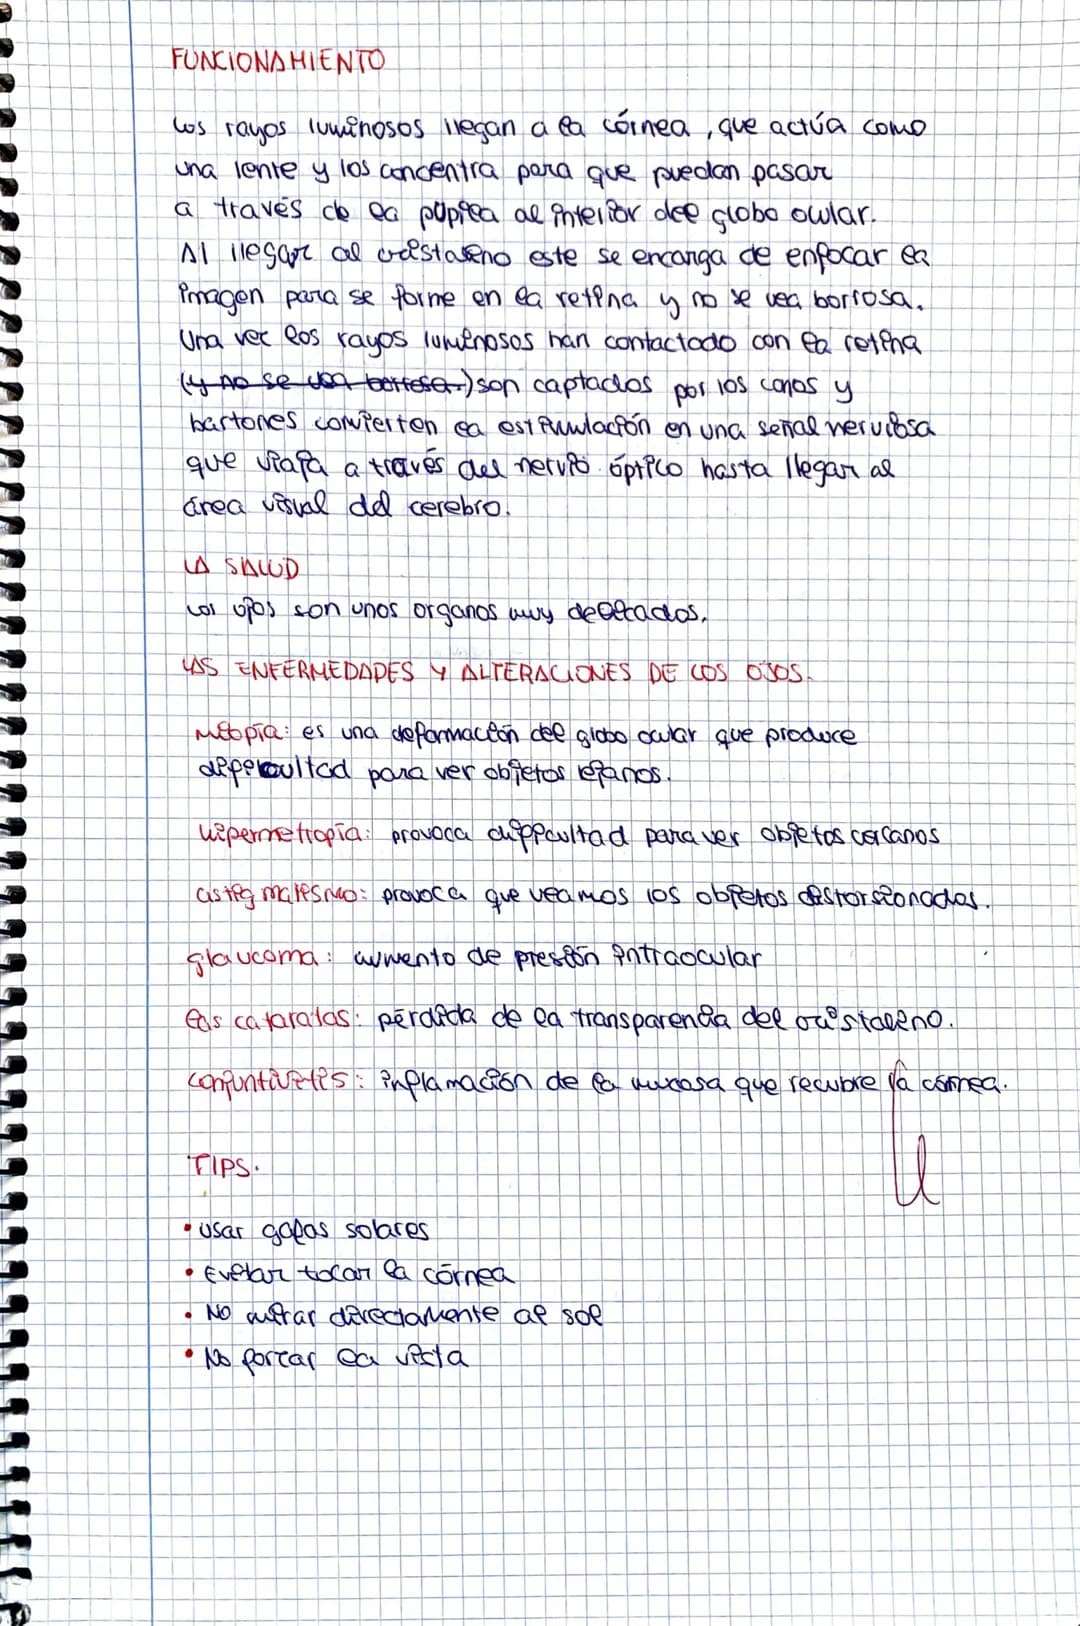 FUNCIONAMIENTO
Los rayos luminosos llegan a la córnea, que actúa como
una lente y los concentra para que puedan pasar
a través de la pupila al interior del globo ocular.
Al llegar al cristalino este se encarga de enfocar la
imagen para se forme en la retina y no se vea borrosa.
Una vez los rayos luminosos han contactado con la retina
(y no se vea borrosa.) son captados por los conos y
bastones convierten la estimulación en una señal nerviosa
que viaja a través del nervio óptico hasta llegar al
área visual del cerebro.
LA SALUD
Los ojos son unos organos muy delicados.
LAS ENFERMEDADES Y ALTERACIONES DE LOS OJOS.
Miopía: es una deformación del globo ocular que produce
dificultad para ver objetos lejanos.
hipermetropía: provoca dificultad para ver objetos cercanos
astigmatismo: provoca que veamos los objetos distorsionados.
glaucoma: aumento de presión intraocular
las cataratas: pérdida de la transparencia del cristalino.
conjuntivitis: inflamación de la mucosa que recubre la córnea.
TIPS.
• usar gafas solares
• Evitar tocar la córnea
• No mirar directamente al sol
• No forzar la vista